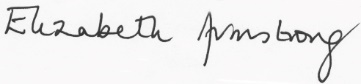 Elizabeth Armstrong